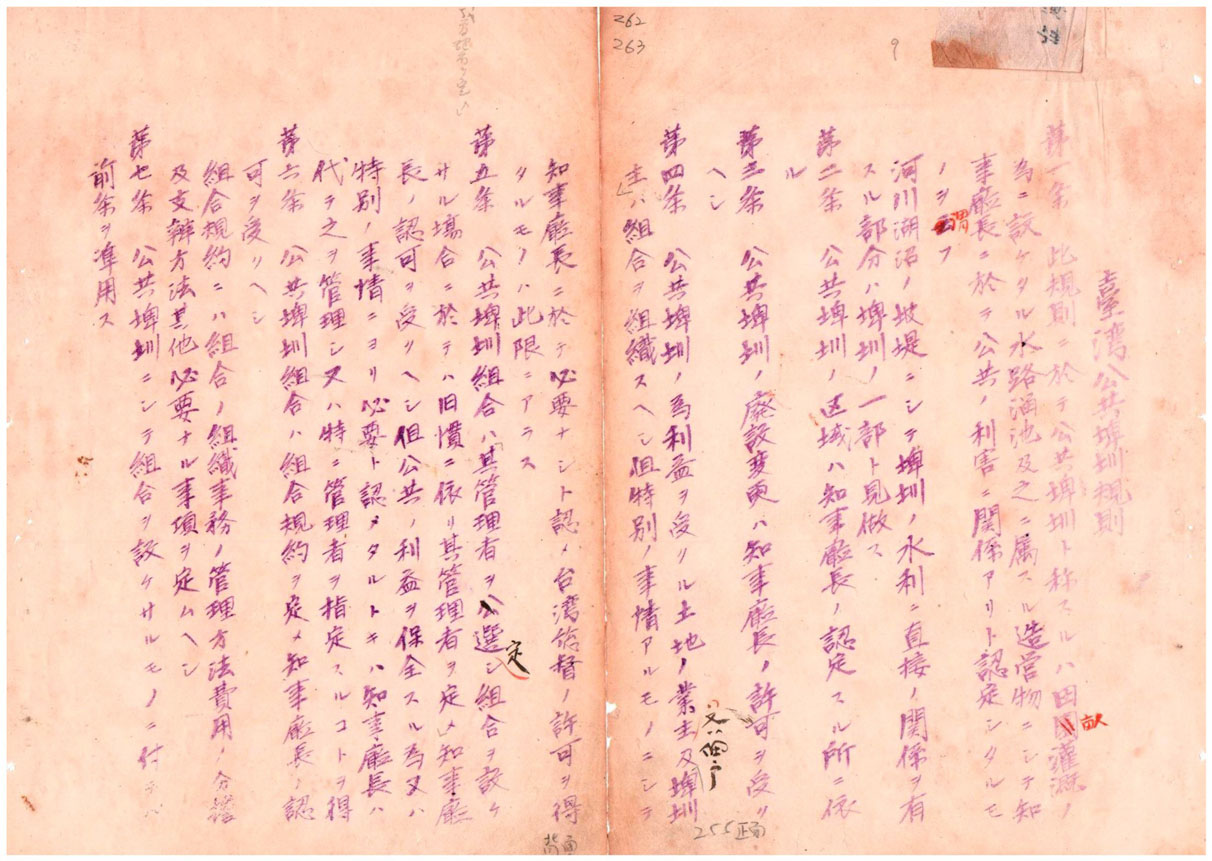 262
263
9
臺湾公共埤圳規則
第一条 此規則ニ於テ公共埤圳ト称スルハ田畝灌漑ノ
為ニ設ケタル水路溜池及之ニ属スル造営物ニシテ知
事廳長ニ於テ公共ノ利害ニ関係アリト認定シタルモ
ノヲ謂フ
河川湖沼ノ坡堤ニシテ埤圳ノ水利ニ直接ノ関係ヲ有
スル部分ハ埤圳ノ一部ト見做ス
第二条 公共埤圳ノ区域ハ知事廳長ノ認定スル所ニ依
ル
第三条 公共埤圳ノ廢設変更ハ知事廳長ノ許可ヲ受ク
ヘシ
第四条 公共埤圳ノ為利益ヲ受クル土地ノ業主及埤圳
又ハ佃戸
主ハ組合ヲ組織スヘシ但特別ノ事情アルモノニシテ
255正面
知事廳長ニ於テ必要ナシト認メ台湾総督ノ許可ヲ得
タルモノハ此限ニアラス
第五条 公共埤圳組合ハ其管理者ヲ公選シ組合ヲ設ケ
定
サル場合ニ於テハ旧慣ニ依リ其管理者ヲ定メ知事廳
長ノ認可ヲ受クヘシ但公共ノ利益ヲ保全スル為又ハ
特別ノ事情ニヨリ必要ト認メタルトキハ知事廳長ハ
代テ之ヲ管理シ又ハ特ニ管理者ヲ指定スルコトヲ得
第六条 公共埤圳組合ハ組合規約ヲ定メ知事廳長ノ認
可ヲ受クヘシ
組合規約ニハ組合ノ組織事務ノ管理方法費用ノ分擔
及支辨方法其他必要ナル事項ヲ定ムヘシ
第七条 公共埤圳ニシテ組合ヲ設ケサルモノニ付テハ
前条ヲ準用ス
背面